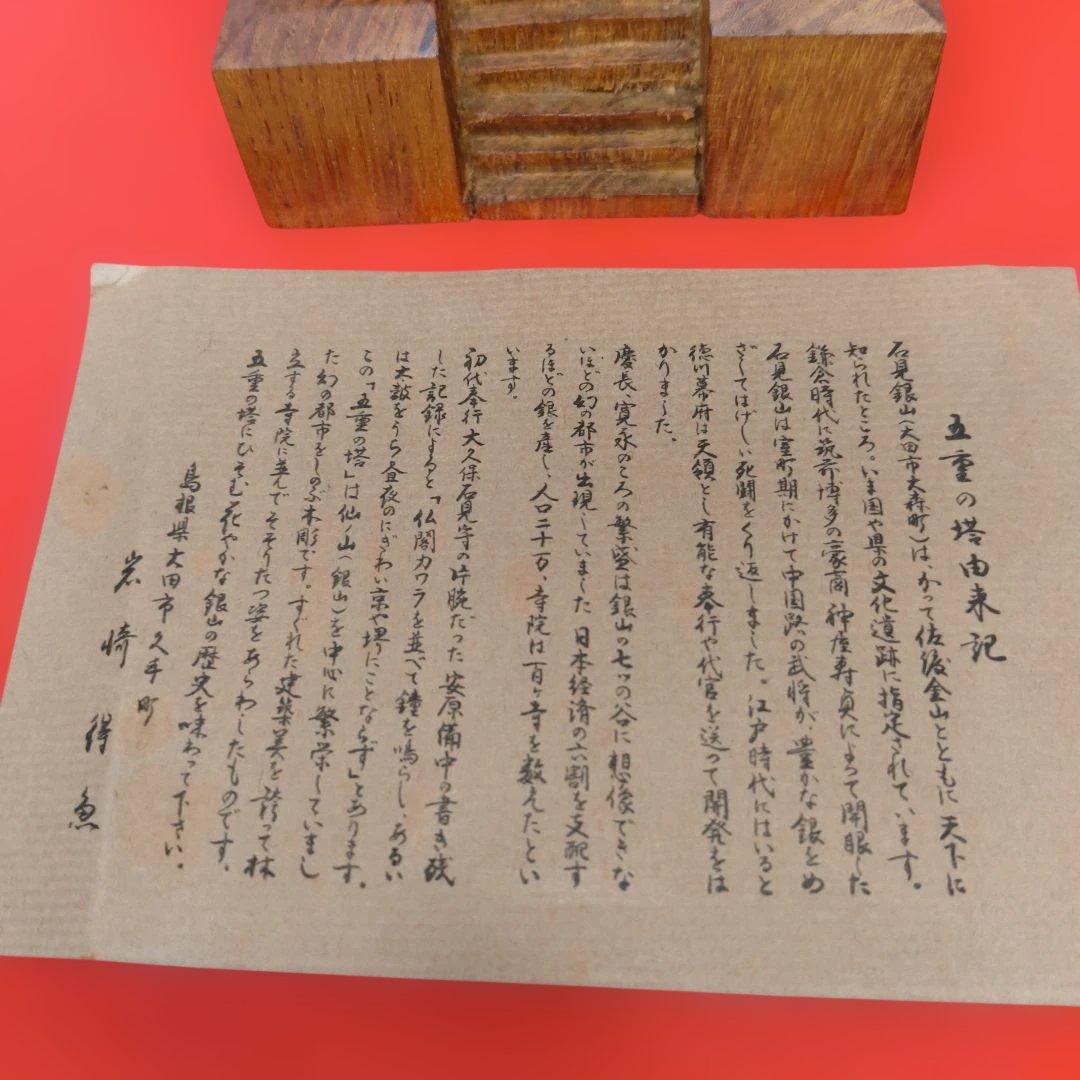 五重の塔由来記
石見銀山（大田市大森町）は、かつて佐渡金山とともに天下に
知られたところ。いま国や県の文化遺跡に指定されています。
鎌倉時代に筑前博多の豪商神屋寿貞によって開眼した
石見銀山は室町期にかけて中国路の武将が、豊かな銀をめ
ざしてはげしい死闘をくり返しました。江戸時代にはいると
徳川幕府は天領とし有能な奉行や代官を送って開発をは
かりました。
慶長、寛永のころの繁盛は銀山の七ッの谷に想像できな
いほどの幻の都市が出現していました 日本経済の六割を支配す
るほどの銀を産し、人口二十万、寺院は百ヶ寺を数えたとい
います。
初代奉行大久保石見守の片腕だった安原備中の書き残
した記録によると「仏閣カワラを並べて鐘を鳴らし、あるい
は太鼓をうち昼夜のにぎわい京や堺にことならず」とあります。
この「五重の塔」は仙ノ山（銀山）を中心に繁栄していまし
た幻の都市をしのぶ木彫です。すぐれた建築美を誇って林
立する寺院に並んでそそりたつ姿をあらわしたものです。
五重の塔にひそむ花やかな銀山の歴史を味わって下さい。
島根県大田市久手町
岩崎得